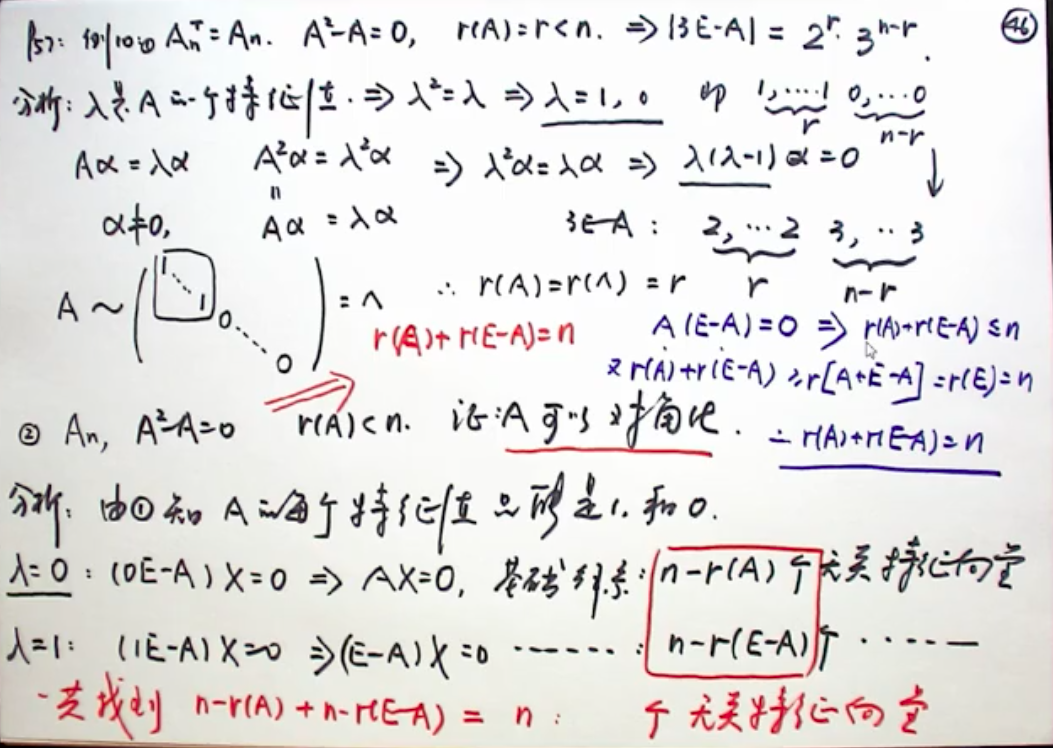 P57: 例10① Aₙᵀ=Aₙ. A²-A=0, r(A)=r<n. ⇒ |3E-A| = 2ʳ·3ⁿ⁻ʳ. ㊻
分析: λ是A的一个特征值. ⇒ λ²=λ ⇒ λ=1, 0 即 1,…1 0,…0
r n-r
Aα=λα A²α=λ²α ⇒ λ²α=λα ⇒ λ(λ-1)α=0 ↓
α≠0, Aα=λα 3E-A: 2,…2 3,…3
r n-r
A~(1⋱1 0⋱0)=Λ ∴ r(A)=r(Λ)=r
r(A)+r(E-A)=n A(E-A)=0 ⇒ r(A)+r(E-A)≤n
又r(A)+r(E-A)≥r[A+E-A]=r(E)=n
② Aₙ, A²-A=0 r(A)<n. 证:A可以对角化. ∴ r(A)+r(E-A)=n
分析: 由①知A的每个特征值只能是1,和0.
λ=0: (0E-A)X=0 ⇒ AX=0, 基础解系: n-r(A)个无关特征向量
λ=1: (1E-A)X=0 ⇒(E-A)X=0 ……: n-r(E-A)个……
一共找到 n-r(A)+n-r(E-A) = n: 个无关特征向量